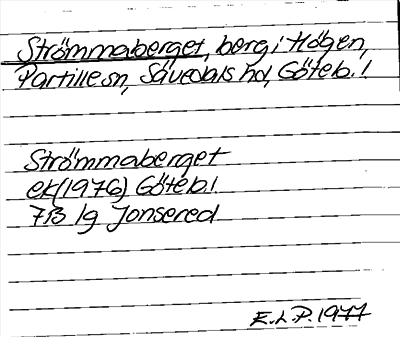 Strömmaberget, berg i Högen,
Partille sn, Sävedals hd, Göteb. l.
Strömmaberget
ek(1976) Göteb l
7B 1g Jonsered
E.L.P. 1977